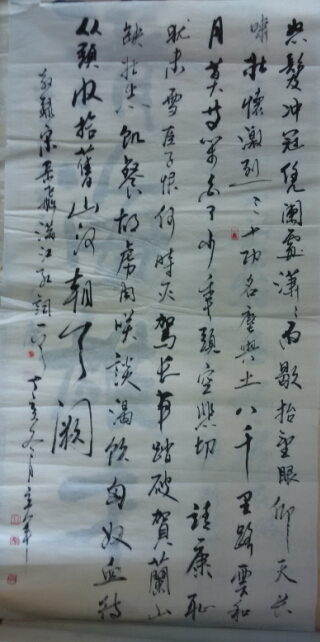 怒髮冲冠凭闌處瀟〻雨歇抬望眼仰天長
嘯壯懷激烈三十功名塵與土八千里路雲和
月莫等閑白了少年頭空悲切 靖康恥
猶未雪臣子恨何時灭駕長車踏破賀蘭山
缺壯志飢餐胡虜肉咲談渴飲匈奴血待
从頭收拾舊山河朝天闕
錄宋岳飛滿江紅詞一首